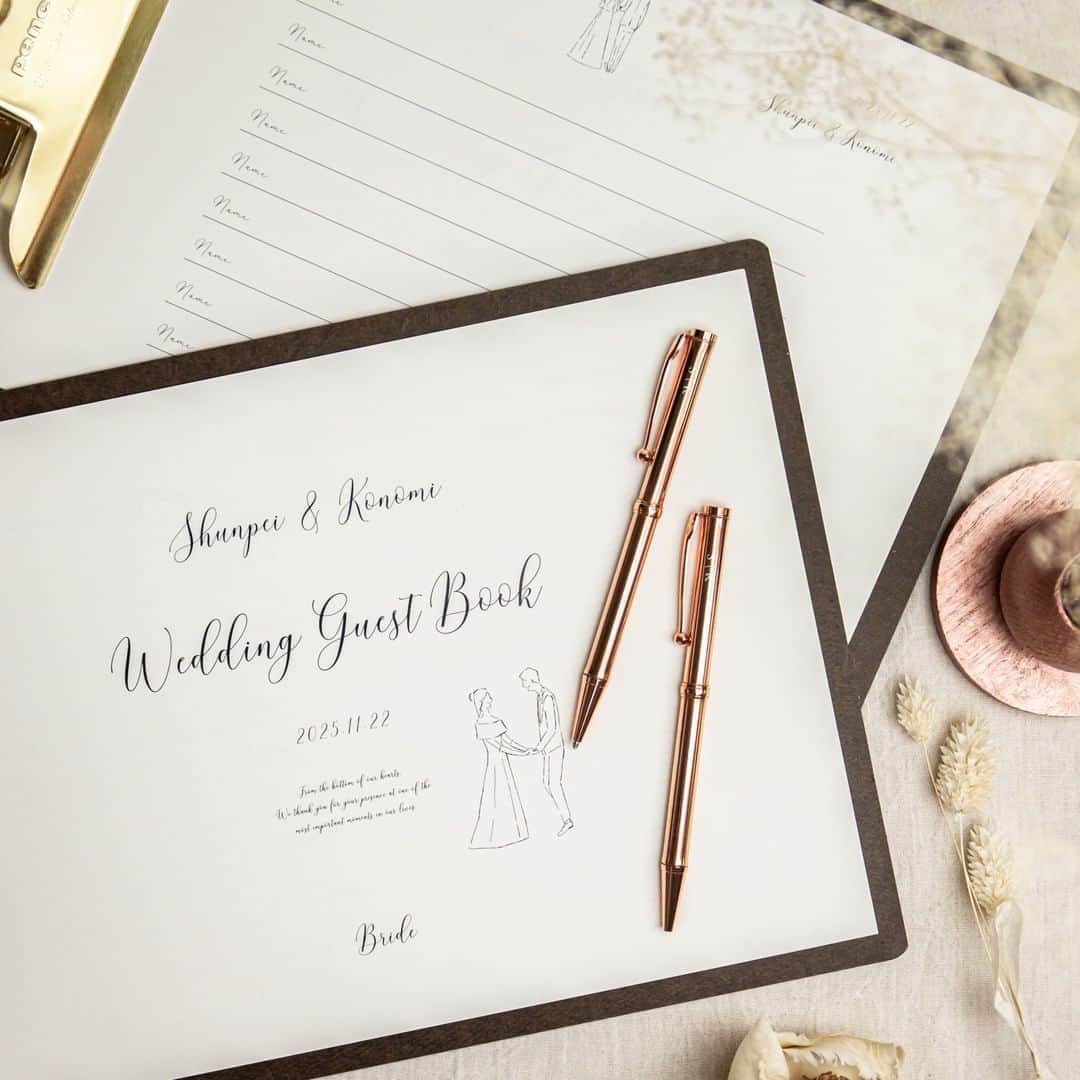 Name
Name
Name
Name
Name
Name
Name
Name
Shunpei & Konomi
Shunpei & Konomi
Wedding Guest Book
2025.11.22
From the bottom of our hearts,
We thank you for your presence at one of the
most important moments in our lives.
Bride